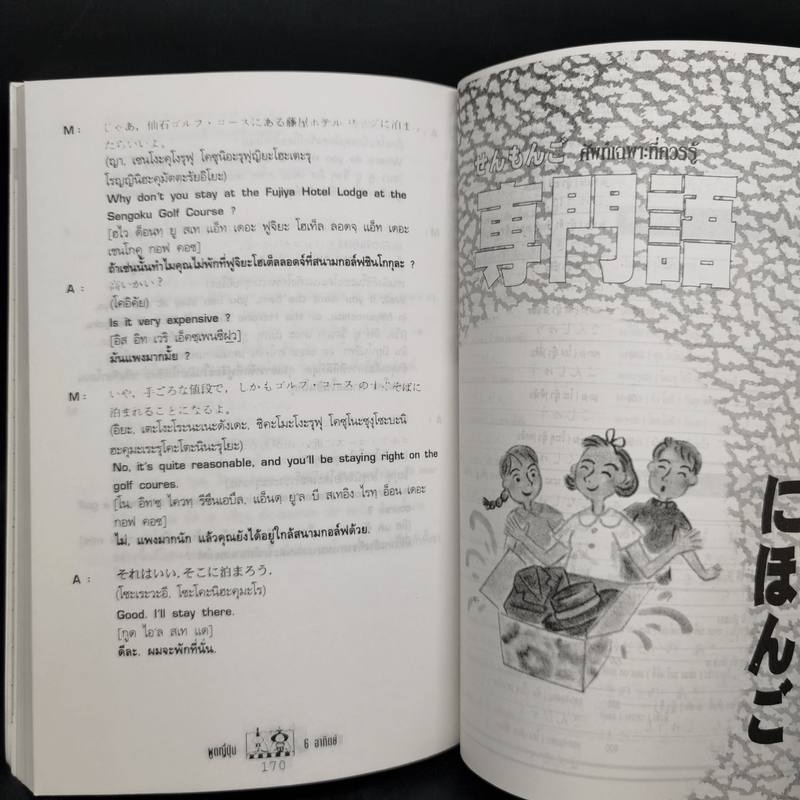 M : じゃあ, 仙石ゴルフ・コースにある藤屋ホテル ロッジに泊まっ
たらいいよ。
(ญา, เซนโงะคุโงรุฟุ โคซุนิอะรุฟุมิยะโฮะเตะรุ
โรญญินิฮะคุมัตตะรัยอิโยะ)
Why don't you stay at the Fujiya Hotel Lodge at the
Sengoku Golf Course ?
[ฮไว ด็อนทฺ ยู สเท แอ็ท เดอะ ฟูจิยะ โฮเท็ล ลอดจฺ แอ็ท เดอะ
เซนโกคุ กอฟ คอซ]
ถ้าเช่นนั้นทำไมคุณไม่พักที่ฟูจิยะโฮเต็ลลอดจ์ที่สนามกอล์ฟชินโกกุละ ?
A : 高いかい?
(โคอิคัย)
Is it very expensive ?
[อิส อิท เวริ เอ็คซฺเพนซีฝฺว]
มันแพงมากมั้ย ?
M : いや, 手ごろな値段で, しかもゴルフ・コース のすぐそばに
泊まれることになるよ。
(อิยะ, เตะโงะโระนะเนะดังเดะ, ชิคะโมะโงะรุฟุ โคซุโนะซุงุโซะบะนิ
ฮะคุมะเระรุโคะโตะนินะรุโยะ)
No, it's quite reasonable, and you'll be staying right on the
golf coures.
[โน, อิท'ซ ไควทฺ รีซึนเอบึล, แอ็นดฺ ยู'ล บี สเทอิง ไรทฺ อ็อน เดอะ
กอฟ คอซ]
ไม่, แพงมากนัก แล้วคุณยังได้อยู่ใกล้สนามกอล์ฟด้วย.
A : それはいい, そこに泊まろう。
(โซะเระวะอี, โซะโคะนิฮะคุมะโร)
Good. I'll stay there.
[กูด ไอ'ล สเท แด]
ดีละ, ผมจะพักที่นั่น.
พูดญี่ปุ่น 6 อาทิตย์
170
せんもんご ศัพท์เฉพาะที่ควรรู้
専門語
にほんご